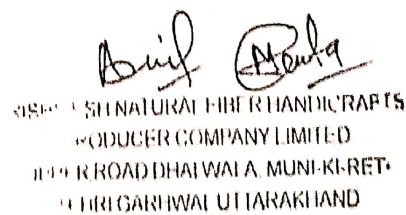 Anil Mewla
NATURAL FIBER HANDICRAFTS
PRODUCER COMPANY LIMITED
ROAD DHALWALA, MUNI-KI-RETI
GARHWAL UTTARAKHAND